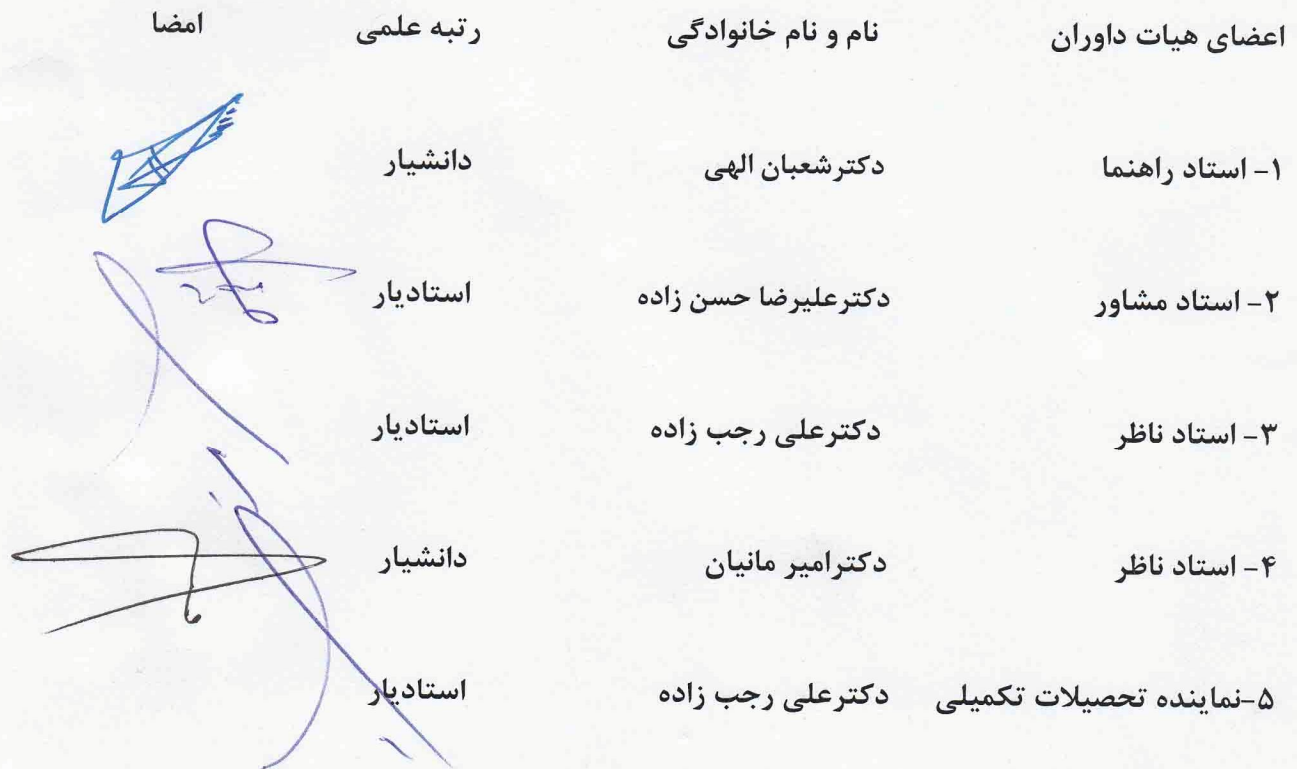 اعضای هیات داوران نام و نام خانوادگی رتبه علمی امضا
۱- استاد راهنما دکترشعبان الهی دانشیار
۲- استاد مشاور دکترعلیرضا حسن زاده استادیار
۳- استاد ناظر دکترعلی رجب زاده استادیار
۴- استاد ناظر دکترامیر مانیان دانشیار
۵-نماینده تحصیلات تکمیلی دکترعلی رجب زاده استادیار